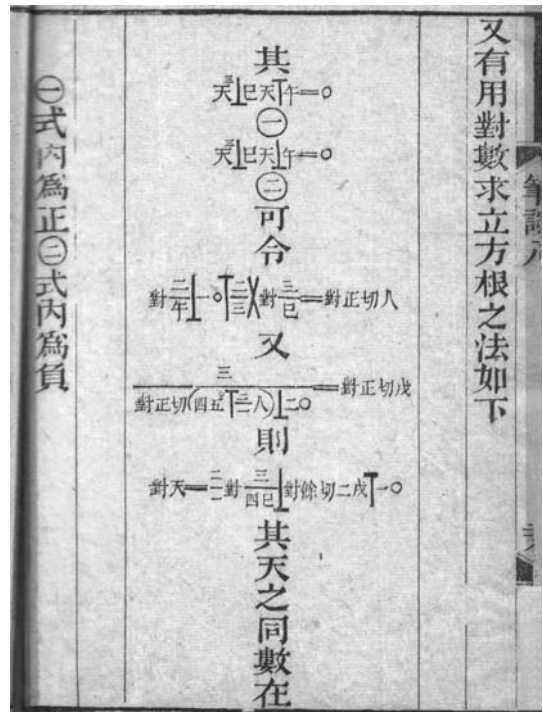 又有用對數求立方根之法如下
其
天三⊥巳天⊤午=〇
㊀
天三⊥巳天⊥午=〇
㊁
可令
對二/午⊥一〇⊤二/三×對三/巳=對正切人
又
三/對正切(四五°⊤二/一人)⊥二〇=對正切戊
則
對天=二/一對三/四巳⊥對餘切二戊⊤一〇
其天之同數在
㊀式內爲正㊁式內爲負